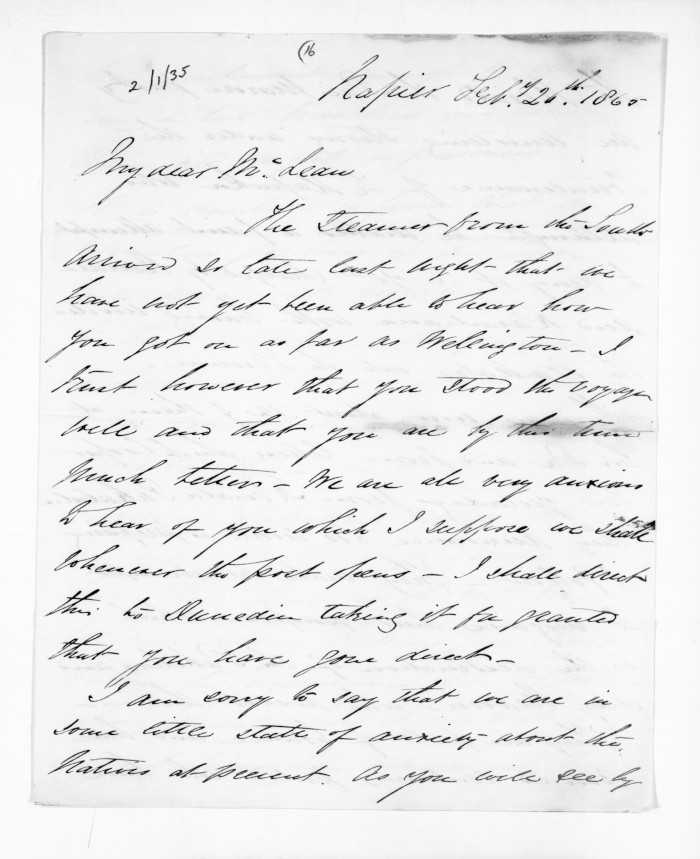 16
2/1/35
Napier Feby. 26th. 1865
My dear McLean
The Steamer from the South
arrived so late last night that we
have not yet been able to hear how
you got on as far as Wellington – I
trust however that you stood the voyage
well and that you are by this time
much better – We are all very anxious
to hear of you which I suppose we shall
whenever the post opens – I shall direct
this to Dunedin taking it for granted
that you have gone direct –
I am sorry to say that we are in
some little state of anxiety about the
Natives at present. As you will see by